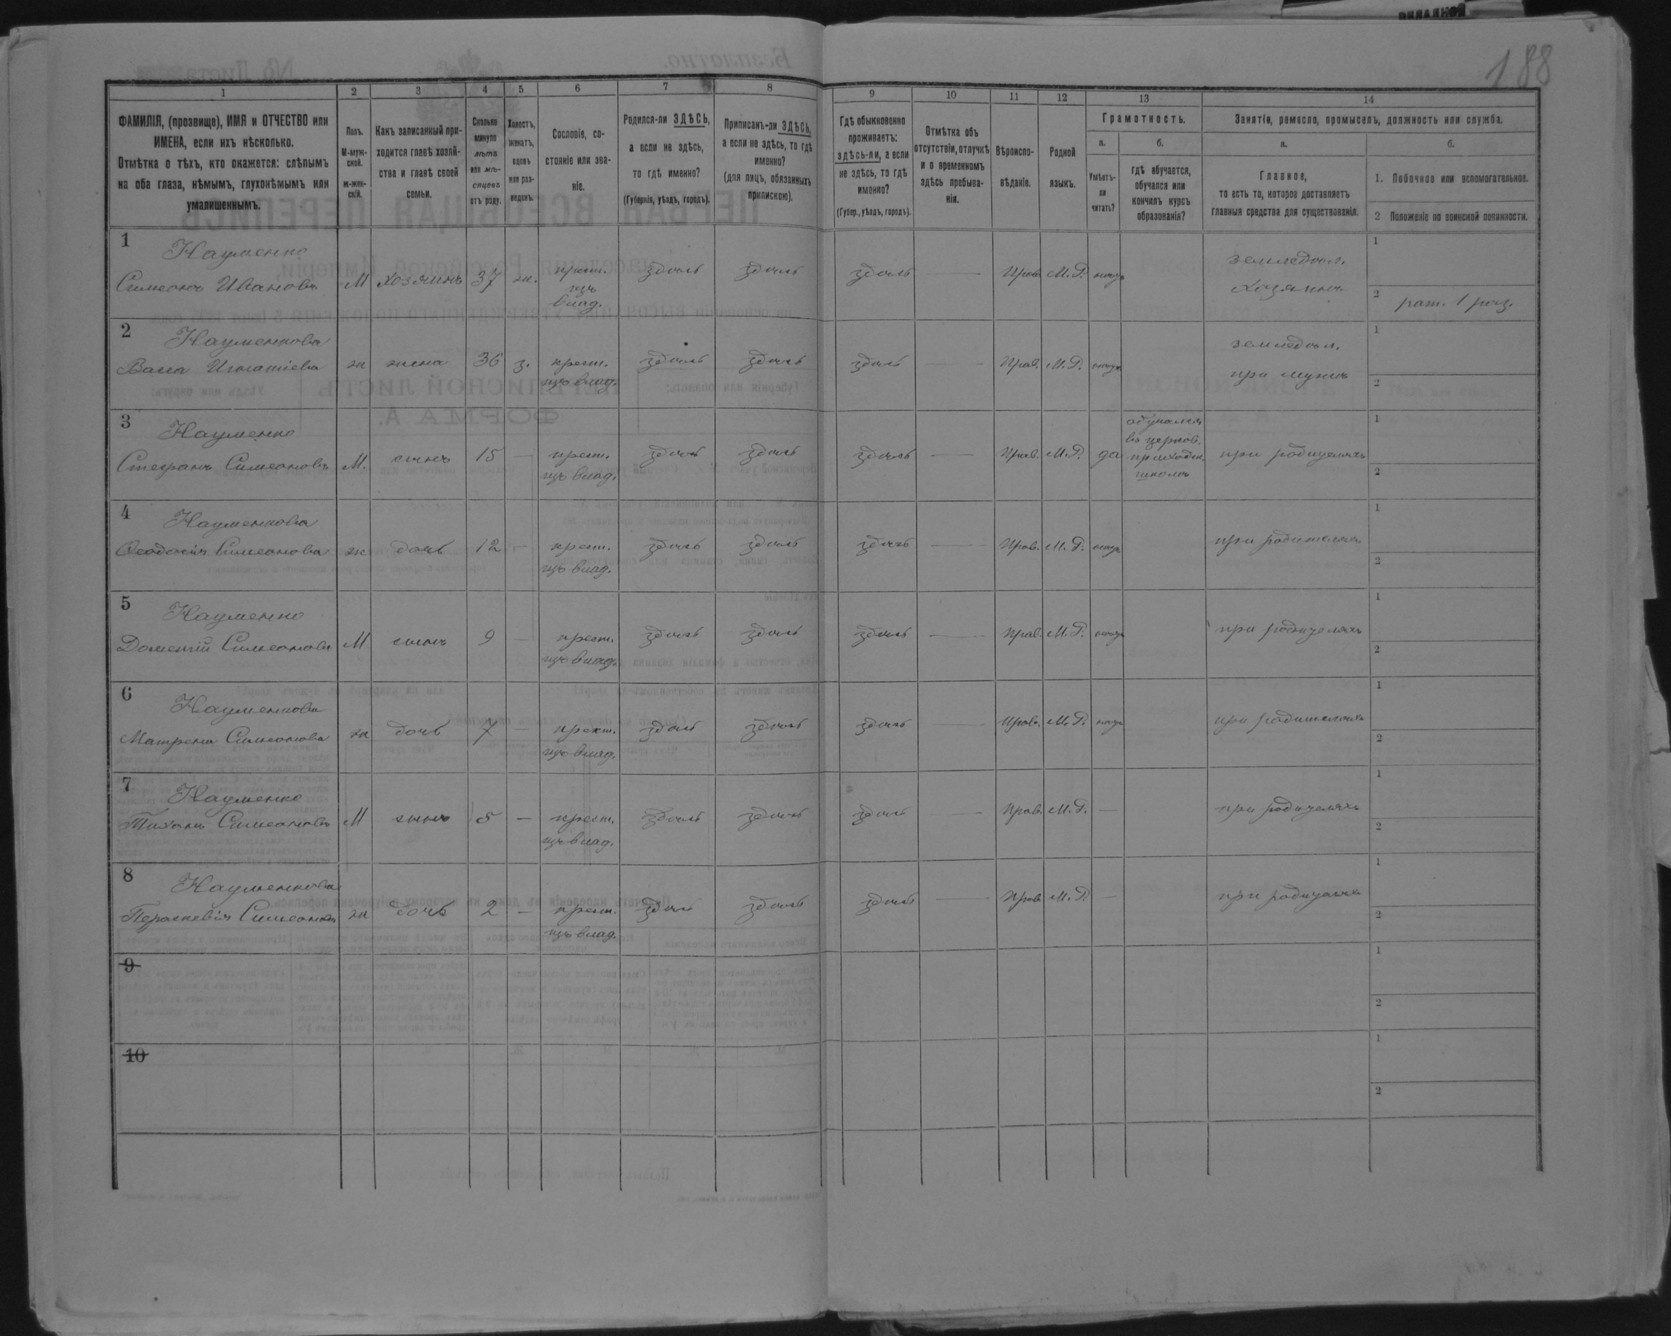 188
1 2 3 4 5 6 7 8 9 10 11 12 13 14
ФАМИЛІЯ, (прозвище), ИМЯ и ОТЧЕСТВО или
ИМЕНА, если ихъ нѣсколько.
Отмѣтка о тѣхъ, кто окажется: слѣпымъ
на оба глаза, нѣмымъ, глухонѣмымъ или
умалишеннымъ.
Полъ.
М-муж-
ской.
ж-жен-
скій.
Какъ записанный при-
ходится главѣ хозяй-
ства и главѣ своей
семьи.
Сколько
минуло
лѣтъ
или мѣ-
сяцевъ
отъ роду.
Холостъ,
женатъ,
вдовъ
или раз-
веденъ.
Сословіе, со-
стояніе или зва-
ніе.
Родился-ли ЗДѢСЬ,
а если не здѣсь,
то гдѣ именно?
(Губернія, уѣздъ, городъ).
Приписанъ-ли ЗДѢСЬ,
а если не здѣсь, то гдѣ
именно?
(для лицъ, обязанныхъ
припискою).
Гдѣ обыкновенно
проживаетъ:
здѣсь-ли, а если
не здѣсь, то гдѣ
именно?
(Губер., уѣздъ, городъ).
Отмѣтка объ
отсутствіи, отлучкѣ
и о временномъ
здѣсь пребыва-
ніи.
Вѣроиспо-
вѣданіе.
Родной
языкъ.
Грамотность.
а.
Умѣетъ-
ли
читать?
б.
гдѣ обучается,
обучался или
кончилъ курсъ
образованія?
Занятія, ремесло, промыселъ, должность или служба.
а.
Главное,
то есть то, которое доставляетъ
главныя средства для существованія.
б.
1. Побочное или вспомогательное.
2 Положеніе по воинской повинности.
1
Науменко
Симеонъ Ивановъ М хозяинъ 37 ж. крест. изъ влад. здѣсь здѣсь здѣсь — Прав. М.Р. нѣтъ земледѣл. хозяинъ
1
2 рат. 1 раз.
2
Науменкова
Васса Игнатіева ж жена 36 з. крест. изъ влад. здѣсь здѣсь здѣсь — Прав. М.Р. нѣтъ земледѣл. при мужѣ
1
2
3
Науменко
Стефанъ Симеоновъ М. сынъ 15 — крест. изъ влад. здѣсь здѣсь здѣсь — Прав. М.Р. да обучался въ церков. приходск. школѣ при родителяхъ
1
2
4
Науменкова
Ѳеодосія Симеонова ж дочь 12 - крест. изъ влад. здѣсь здѣсь здѣсь — Прав. М.Р. нѣтъ при родителяхъ
1
2
5
Науменко
Симеоновъ М сынъ 9 — крест. изъ влад. здѣсь здѣсь здѣсь — Прав. М.Р. нѣтъ при родителяхъ
1
2
6
Науменкова
Матрена Симеонова ж дочь 7 — крест. изъ влад. здѣсь здѣсь здѣсь — Прав. М.Р. нѣтъ при родителяхъ
1
2
7
Науменко
Тихонъ Симеоновъ М сынъ 5 — крест. изъ влад. здѣсь здѣсь здѣсь — Прав. М.Р. — при родителяхъ
1
2
8
Науменкова
Параскевія Симеонова ж дочь 2 — крест. изъ влад. здѣсь здѣсь здѣсь — Прав. М.Р — при родителяхъ
1
2
9
1
2
10
1
2